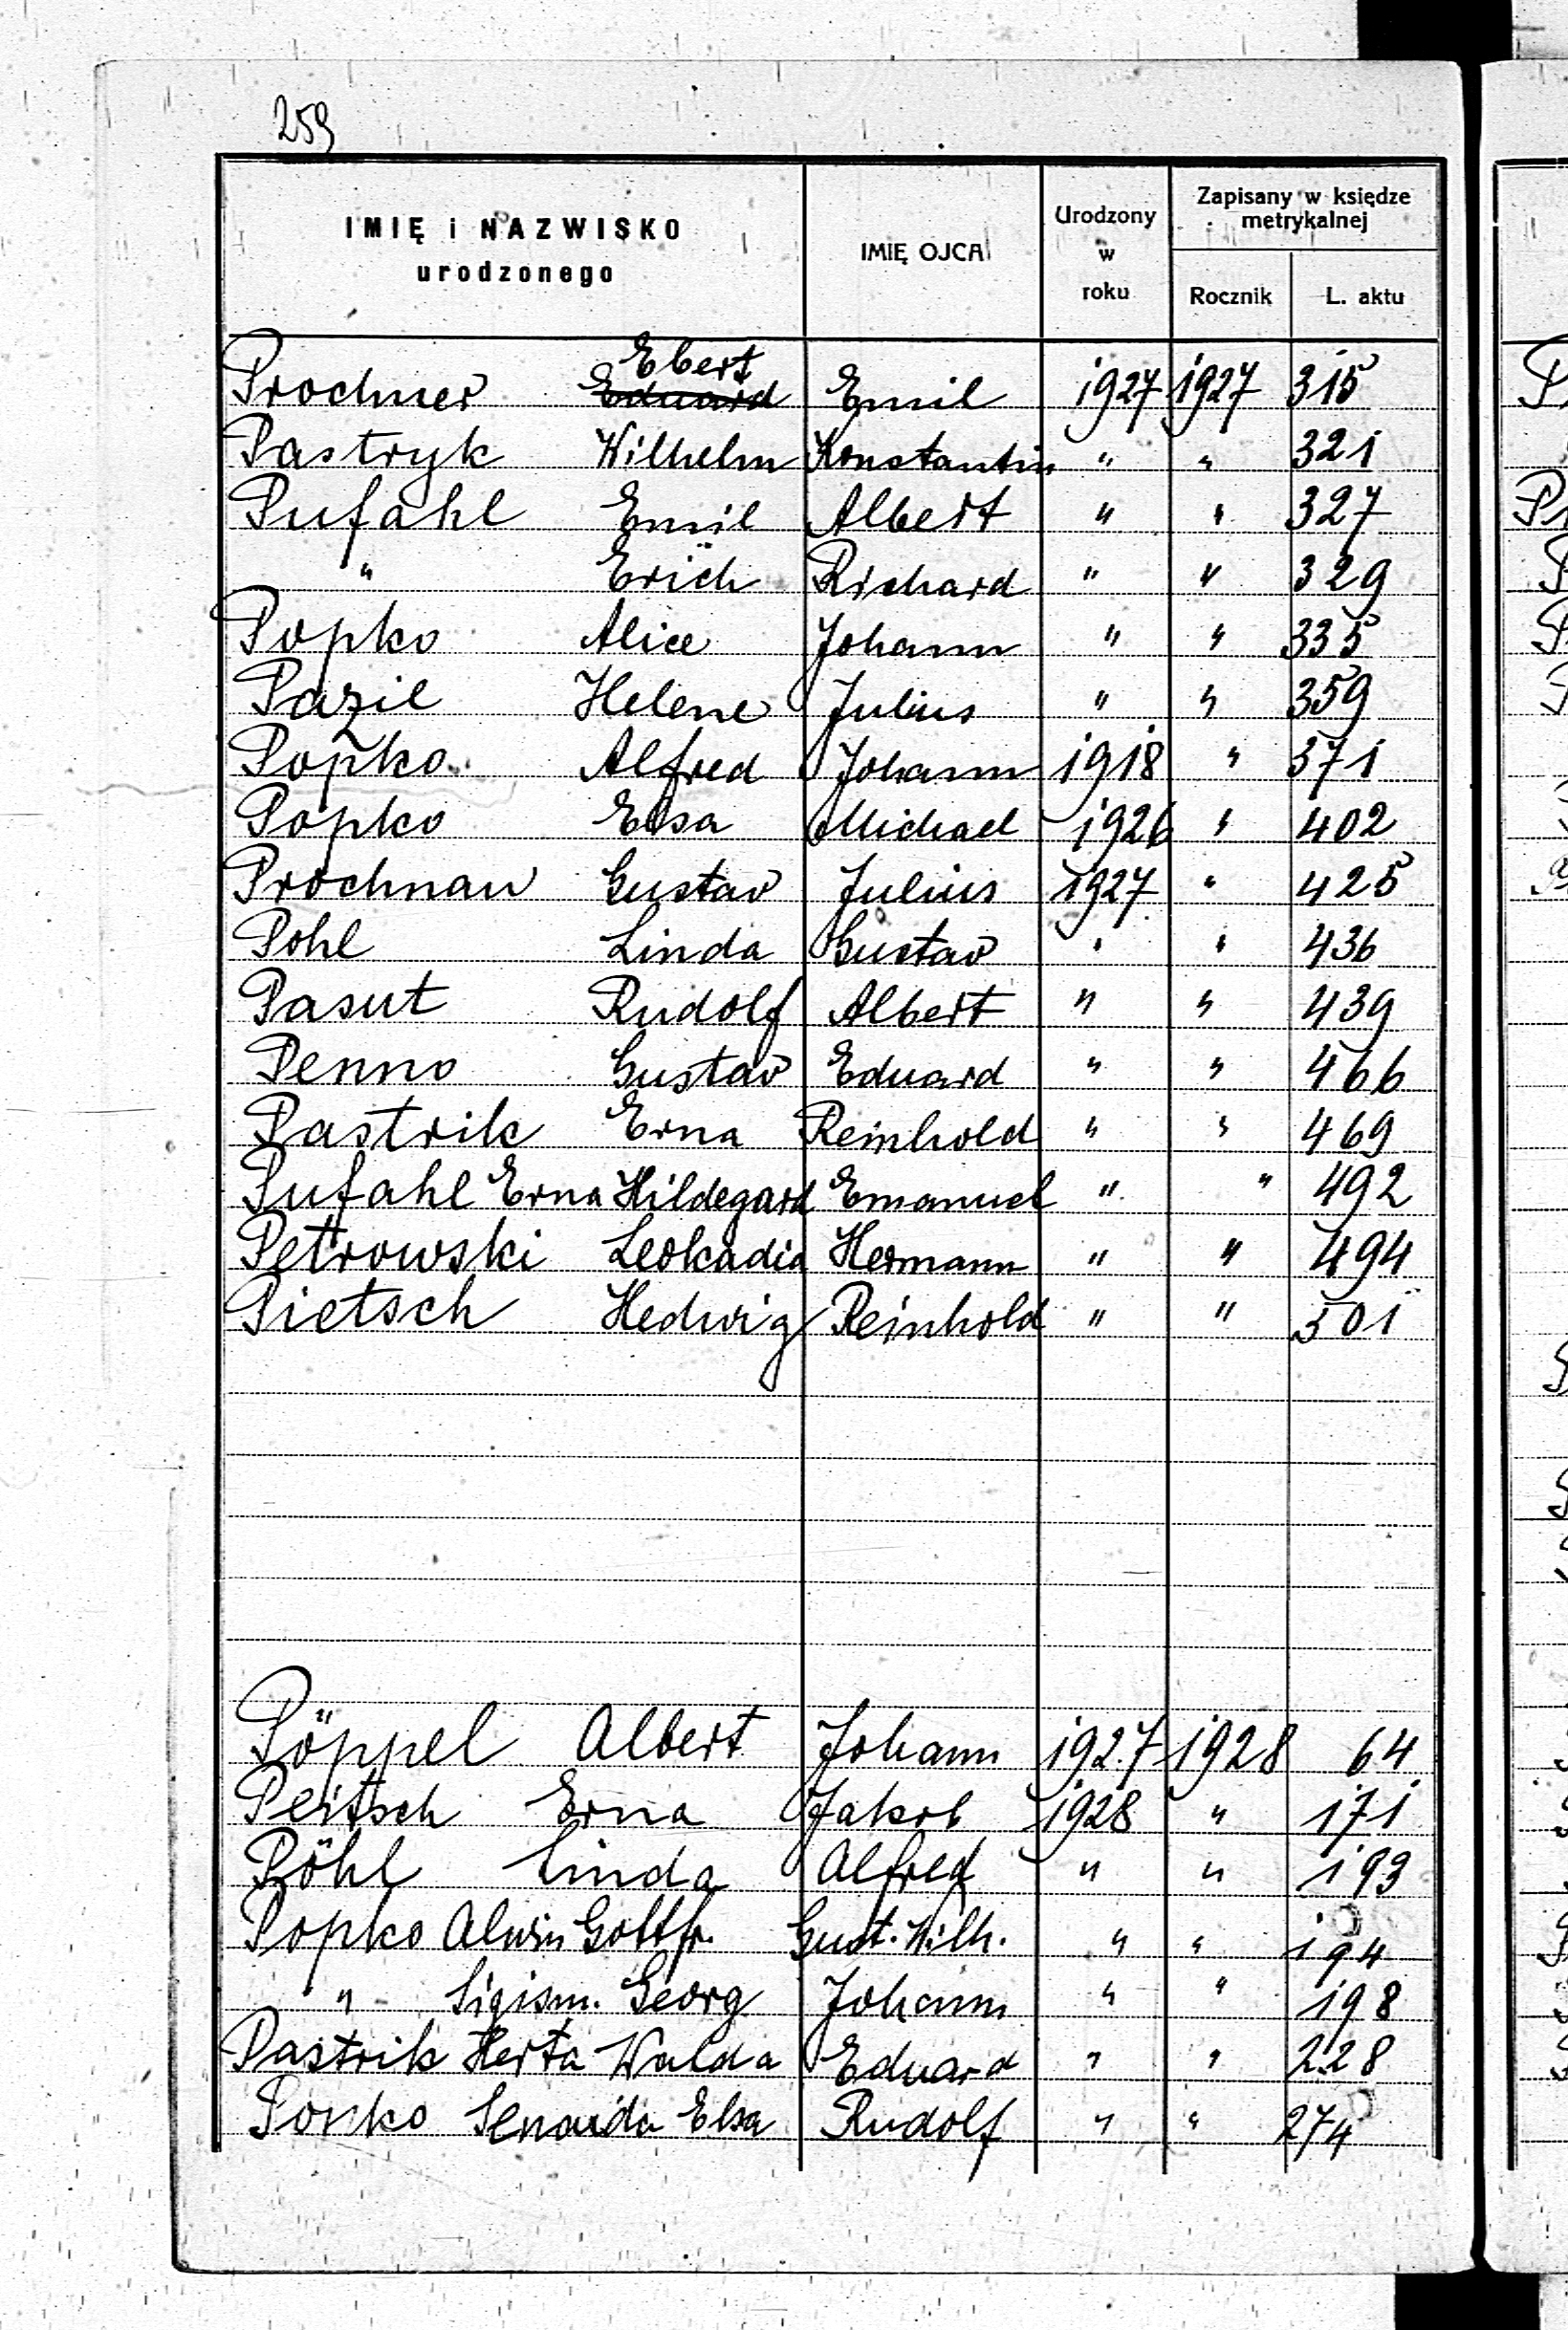 259
IMIĘ i NAZWISKO urodzonego IMIĘ OJCA Urodzony w roku Zapisany w księdze metrykalnej Rocznik L. aktu
Ebert
Prochner Eduard Emil 1927 1927 315
Pastryk Wilhelm Konstantin " " 321
Pufahl Emil Albert " " 327
" Erich Richard " " 329
Popko Alice Johann " " 335
Pazil Helene Julius " " 359
Popko Alfred Johann 1918 " 371
Popko Elsa Michael 1926 " 402
Prochnau Gustav Julius 1927 " 425
Pohl Linda Gustav " " 436
Pasut Rudolf Albert " " 439
Penno Gustav Eduard " " 466
Pastrik Erna Reinhold " " 469
Pufahl Erna Hildegard Emanuel " " 492
Petrowski Leokadia Hermann " " 494
Pietsch Hedwig Reinhold " " 501
Pöppel Albert Johann 1927 1928 64
Peitsch Erna Jakob 1928 " 171
Pöhl Linda Alfred " " 193
Popko Alwin Gottfr. Gust. Wilh. " " 194
" Sigism. Georg Johann " " 198
Pastrik Herta Walda Eduard " " 228
Popko Senaida Elsa Rudolf " " 274